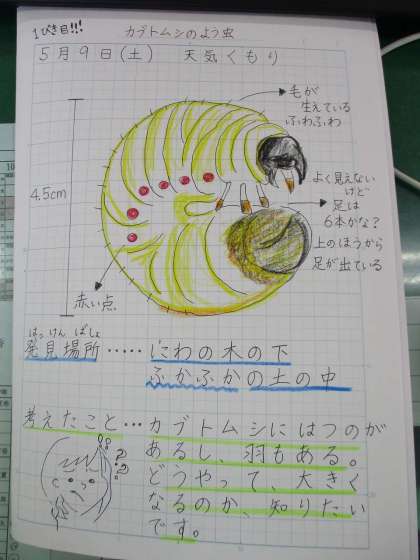 1ぴき目!!!
カブトムシのよう虫
5月9日(土) 天気くもり
毛が
生えている
ふわふわ
4.5cm
よく見えない
けど
足は
6本かな?
上のほうから
足が出ている
赤い点
はっけん ばしょ
発見場所……にわの木の下
ふかふかの土の中
考えたこと…カブトムシにはつのが
あるし、羽もある。
どうやって、大きく
なるのか、知りたい
です。
???